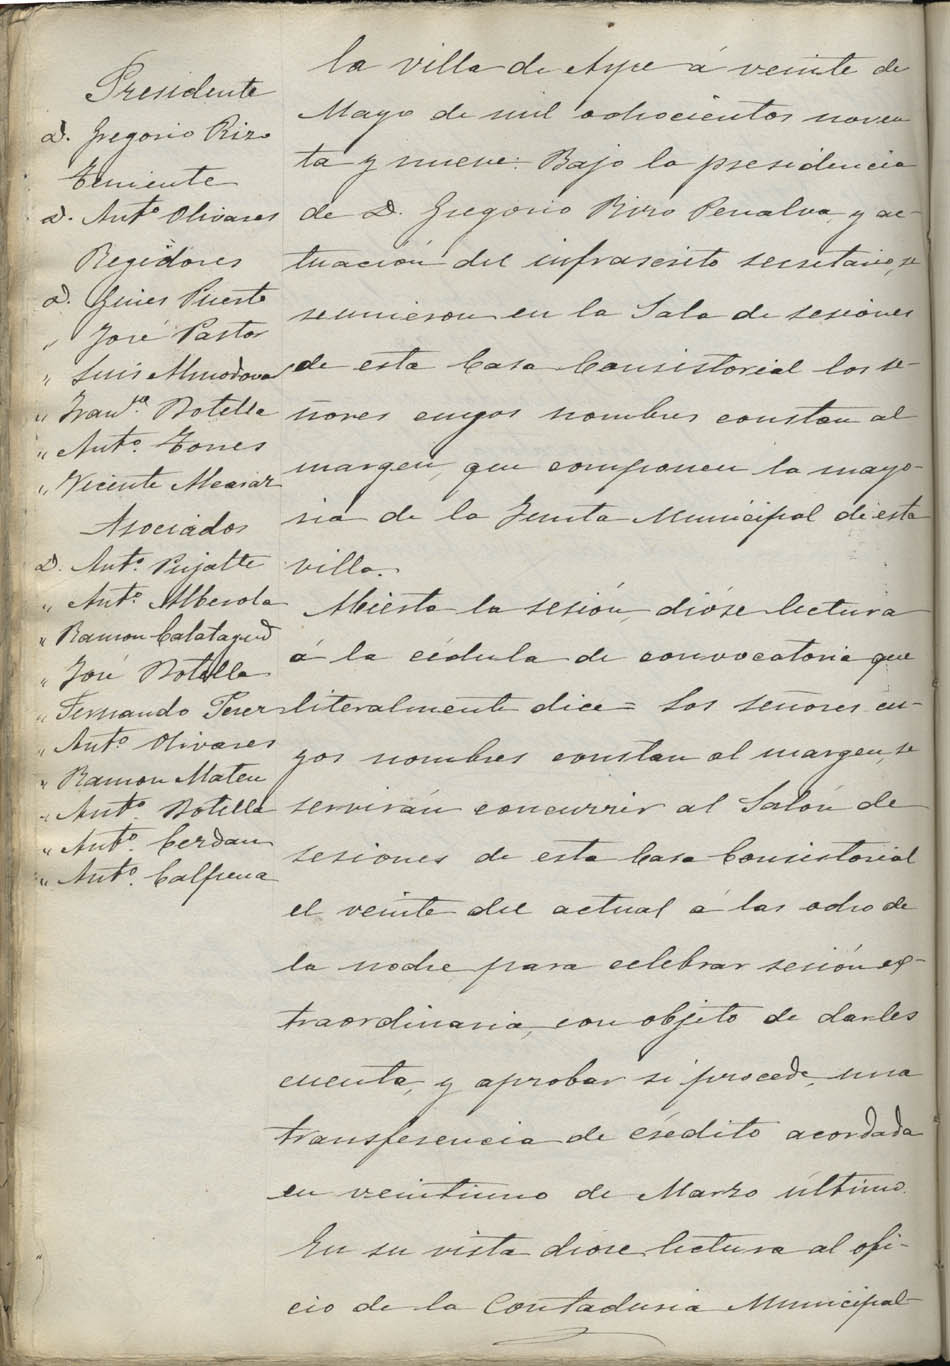 Presidente
D. Gregorio Rizo
Teniente
D. Antº Olivares
Regidores
D. Gines Puerto
" José Pastor
" Luis Almodovar
" Franco Botella
" Antº. Torres
" Vicente
Asociados
D. Antº Pujalte
" Antº. Alberola
" Ramon Calatayud
" José Botella
" Fernando Perez
" Antº Olivares
" Ramon Mateu
" Antº. Botella
" Antº. Cerdan
" Antº. Calpena
la villa de Aspe á veinte de
Mayo de mil ochocientos noven
ta y nueve: Bajo la presidencia
de D. Gregorio Rizo Penalva, y ac-
tuación del infrascrito secretario, se
reunieron en la Sala de sesiones
de esta Casa Consistorial los se-
ñores cuyos nombres constan al
margen, que componen la mayo-
ria de la Junta Municipal de esta
villa.
Abierta la sesión, dióse lectura
á la cédula de convocatoria que
literalmente dice = Los señores cu-
yos nombres constan al margen, se
servirán concurrir al Salón de
sesiones de esta Casa Consistorial
el veinte del actual á las ocho de
la noche para celebrar sesión ex-
traordinaria, con objeto de darles
cuenta, y aprobar si procede, una
transferencia de crédito acordada
en veintiuno de Marzo último.
En su vista diose lectura al ofi-
cio de la Contaduria Municipal